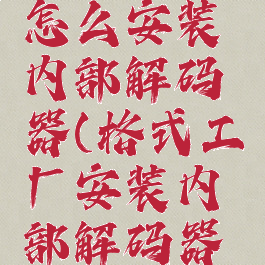 怎么安装
内部解码
器(格式工
厂安装内
部解码器